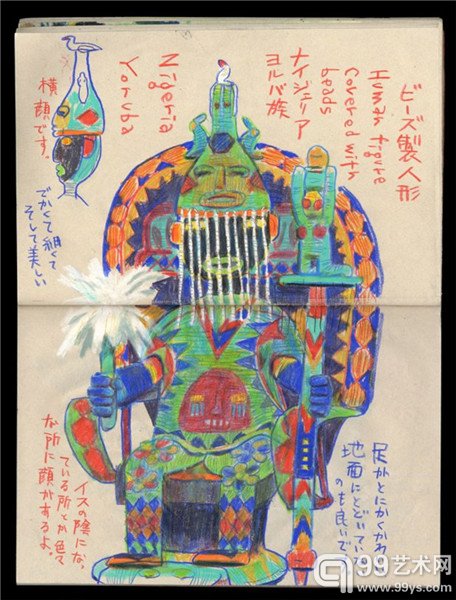 ビーズ製人形
Human figure
Covered with
beads
ナイジェリア
ヨルバ族
Nigeria
Yoruba
横顔です。
でかくて細くて
そして美しい
足がとにかくかわいい
地面にとどいている
のも良いで
イスの陰にな
ている所とか色々
な所に顔があるよ。
99艺术网
www.99ys.com